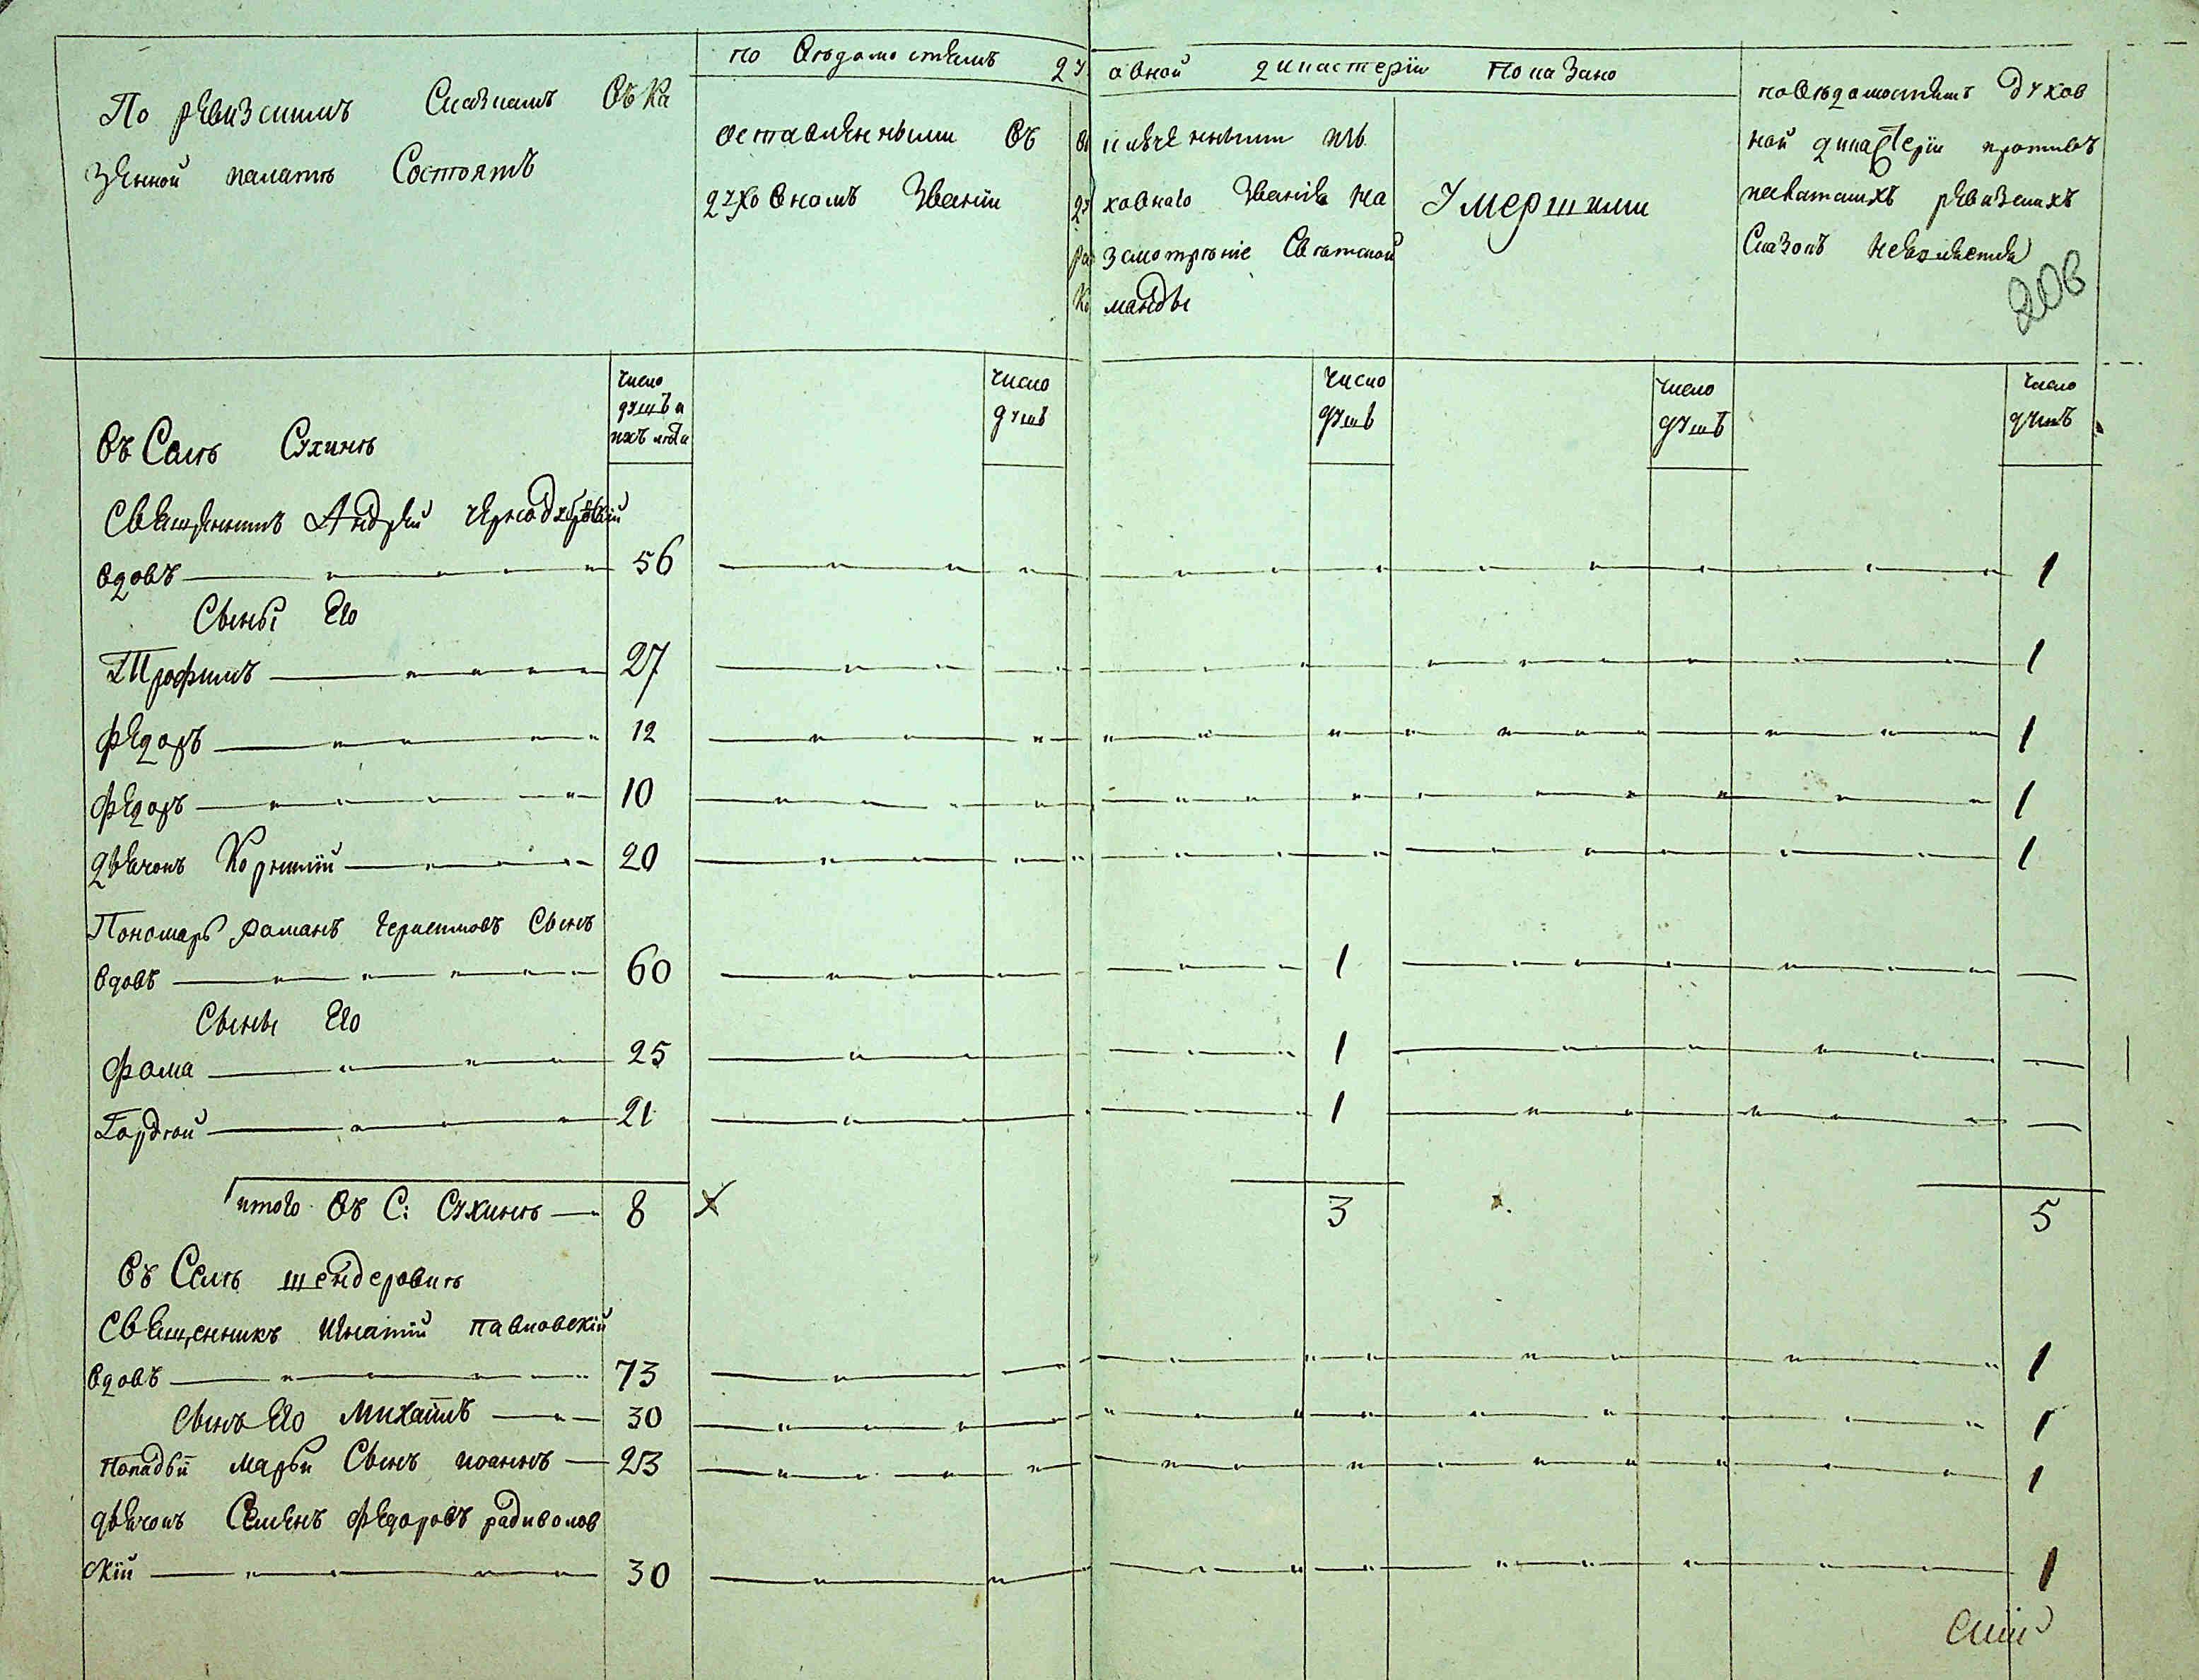 По ревизскимъ Сказкамъ Въ Ка
зенной палатѣ Состоятъ
по Вѣдомостямъ духовной дикастеріи Показано
оставленными Въ
духовномъ Званіи
Исключенными изъ
духовнаго Званія на
разсмотрѣніе Свѣтской
Команды
Умершими
по Вѣдомостямъ духов
ной дикастеріи противъ
ревизскихъ
Сказокъ неявляется
206
Число
душъ и
ихъ лѣта
Число
душъ
Число
душъ
Число
душъ
Число
душъ
Въ Селѣ Сухинѣ
Священникъ Андрей
вдовъ 56 1
Сыны Его
Трофимъ 27 1
Федоръ 12 1
Федоръ 10 1
дьячокъ Корнилій 20 1
Пономарь Романъ Сынъ
вдовъ 60 1
Сыны Его
Фома 25 1
Гордѣй 21 1
итого Въ С: Сухинѣ 8 3 5
Въ Селѣ шендеровкѣ
Священникъ Игнатій павловскій
вдовъ 73 1
Сынъ Его Михаилъ 30 1
попадьи Марьи Сынъ иоаннъ 23 1
дьячокъ Семенъ Федоровъ радиволов
скій 30 1